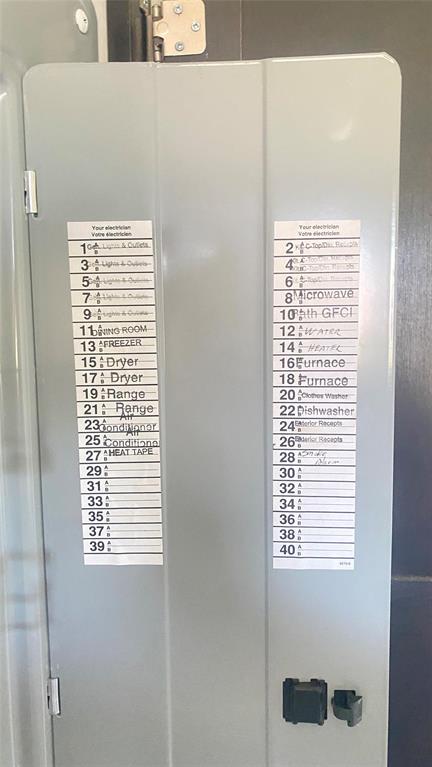 Your electrician
Votre électricien
1 A B Gen. Lights & Outlets
3 A B Gen. Lights & Outlets
5 A B Gen. Lights & Outlets
7 A B Gen. Lights & Outlets
9 A B Gen. Lights & Outlets
11 A B DINING ROOM
13 A B FREEZER
15 A B Dryer
17 A B Dryer
19 A B Range
21 A B Range
23 A B Air Conditioner
25 A B Air Conditioner
27 A B HEAT TAPE
29 A B
31 A B
33 A B
35 A B
37 A B
39 A B
Your electrician
Votre électricien
2 A B C-Top/Din. Recepts
4 A B C-Top/Din. Recepts
6 A B C-Top/Din. Recepts
8 A B Microwave
10 A B Bath GFCI
12 A B WATER
14 A B HEATER
16 A B Furnace
18 A B Furnace
20 A B Clothes Washer
22 A B Dishwasher
24 A B Exterior Recepts
26 A B Exterior Recepts
28 A B Smoke Alarm
30 A B
32 A B
34 A B
36 A B
38 A B
40 A B